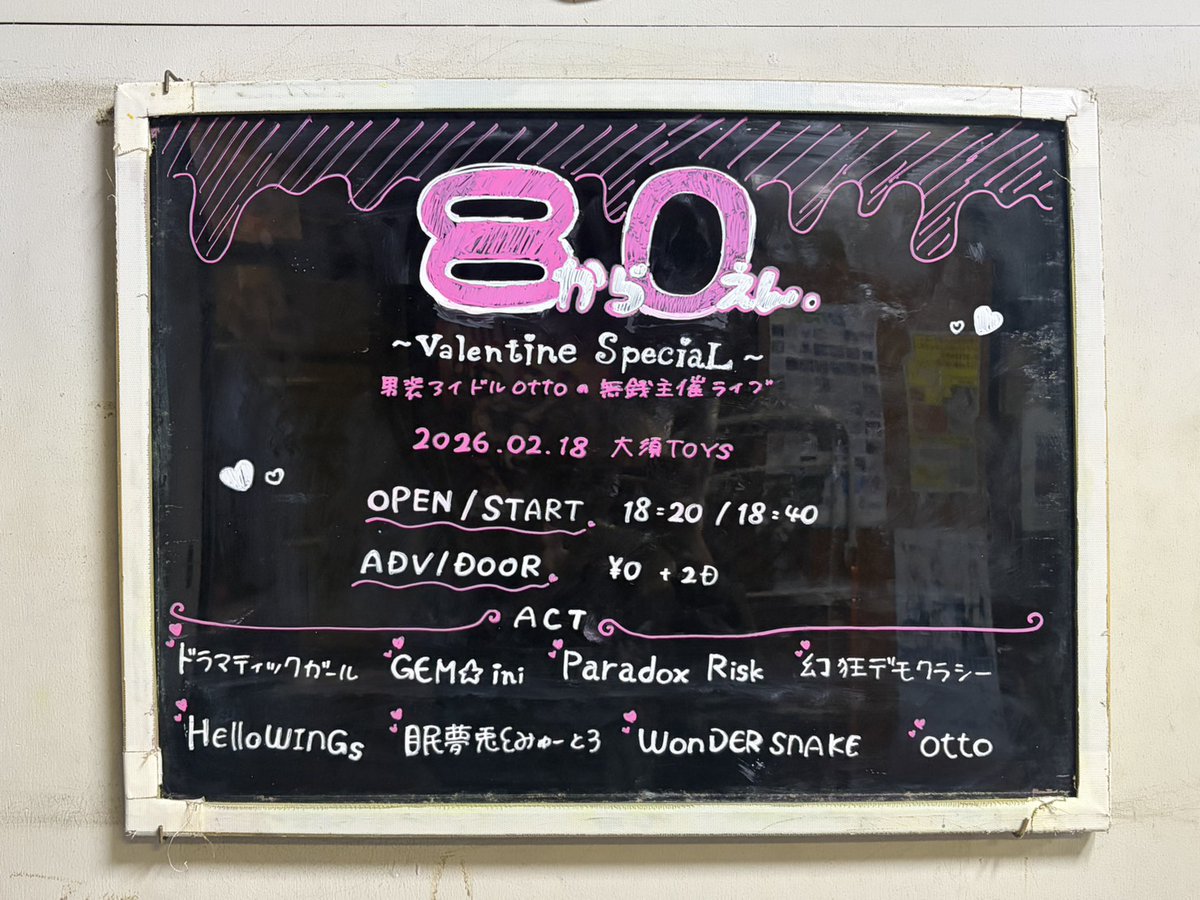 8から0えん。
~Valentine SpeciaL~
男装アイドルottoの無銭主催ライブ
2026.02.18 大須TOYS
OPEN/START 18:20 / 18:40
ADV/DOOR ¥0 + 2D
ACT
ドラマティックガール GEM☆ini Paradox Risk 幻狂デモクラシー
HelloWINGs 眠夢兎ξみゅーとろ WonDER SNAKE otto